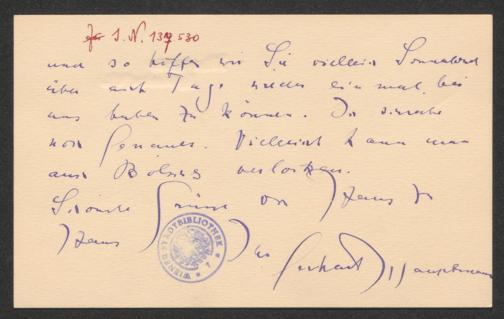 I. N. 137530
und so hoffen wir Sie vielleicht Sonnabend
über acht Tage wieder einmal bei
uns haben zu können. Ich schreibe
noch Genaues. Vielleicht kann man
auch Bölsche verlocken.
Schönste Grüsse von Haus zu
Haus Ihr Gerhart Hauptmann
WIENER STADTBIBLIOTHEK